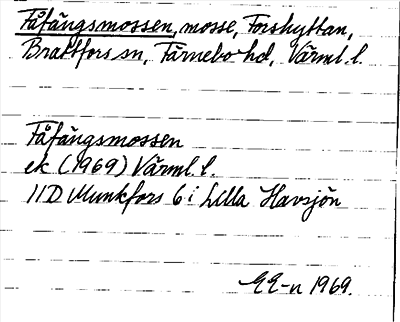 Fåfängsmossen, mosse, Forshyttan,
Brattfors sn, Färnebo hd, Värml. l.
Fåfängsmossen
ek (1969) Värml. l.
11D Munkfors 6 i Lilla Havsjön
EE-n 1969.